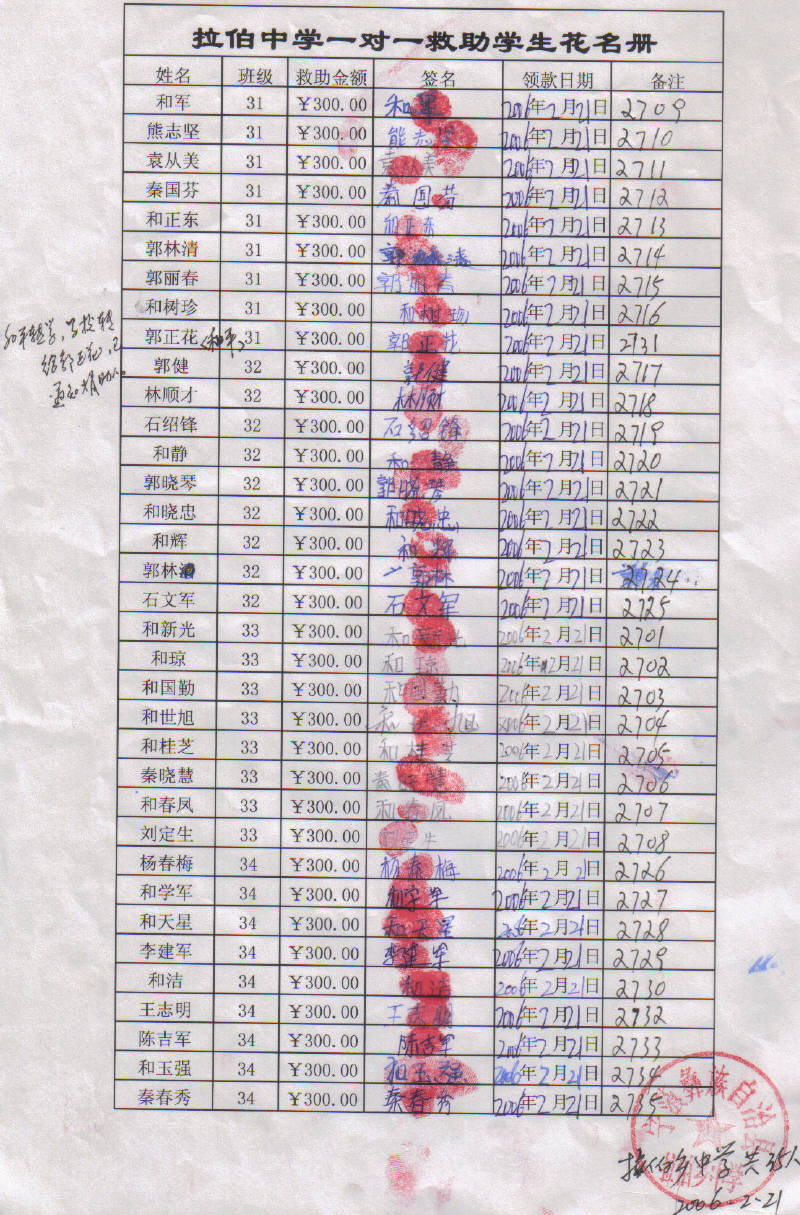 拉伯中学一对一救助学生花名册
姓名 班级 救助金额 签名 领款日期 备注
和军 31 ￥300.00 和军 2006年2月21日 2709
熊志坚 31 ￥300.00 熊志坚 2006年2月21日 2710
袁从美 31 ￥300.00 袁从美 2006年2月21日 2711
秦国芬 31 ￥300.00 秦国芬 2006年2月21日 2712
和正东 31 ￥300.00 和正东 2006年2月21日 2713
郭林清 31 ￥300.00 郭林清 2006年2月21日 2714
郭丽春 31 ￥300.00 郭丽春 2006年2月21日 2715
和树珍 31 ￥300.00 和树珍 2006年2月21日 2716
郭正花(和平) 31 ￥300.00 郭正花 2006年2月21日 2731
郭健 32 ￥300.00 郭健 2006年2月21日 2717
林顺才 32 ￥300.00 林顺才 2006年2月21日 2718
石绍锋 32 ￥300.00 石绍锋 2006年2月21日 2719
和静 32 ￥300.00 和静 2006年2月21日 2720
郭晓琴 32 ￥300.00 郭晓琴 2006年2月21日 2721
和晓忠 32 ￥300.00 和晓忠 2006年2月21日 2722
和辉 32 ￥300.00 和辉 2006年2月21日 2723
郭林 32 ￥300.00 郭林 2006年2月21日 2724
石文军 32 ￥300.00 石文军 2006年2月21日 2725
和新光 33 ￥300.00 和新光 2006年2月21日 2701
和琼 33 ￥300.00 和琼 2006年2月21日 2702
和国勤 33 ￥300.00 和国勤 2006年2月21日 2703
和世旭 33 ￥300.00 和世旭 2006年2月21日 2704
和桂芝 33 ￥300.00 和桂芝 2006年2月21日 2705
秦晓慧 33 ￥300.00 秦晓慧 2006年2月21日 2706
和春凤 33 ￥300.00 和春凤 2006年2月21日 2707
刘定生 33 ￥300.00 2006年2月21日 2708
杨春梅 34 ￥300.00 杨春梅 2006年2月21日 2726
和学军 34 ￥300.00 和学军 2006年2月21日 2727
和天星 34 ￥300.00 和天星 2006年2月21日 2728
李建军 34 ￥300.00 李建军 2006年2月21日 2729
和洁 34 ￥300.00 和洁 2006年2月21日 2730
王志明 34 ￥300.00 王志明 2006年2月21日 2732
陈吉军 34 ￥300.00 陈吉军 2006年2月21日 2733
和玉强 34 ￥300.00 和玉强 2006年2月21日 2734
秦春秀 34 ￥300.00 秦春秀 2006年2月21日 2735
和平转学，学校转
给郭正花，已
通知捐助人。
宁蒗彝族自治县
拉伯乡中学共35人
2006-2-21